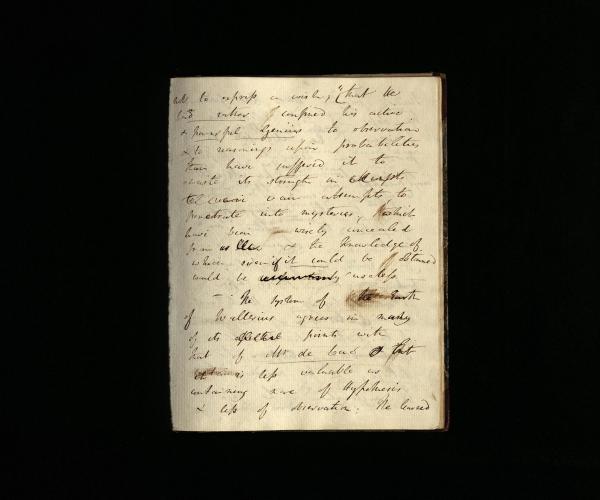 to express a wish, "that he
had rather confined his active
& powerful Genius to observation
& to reasonings upon probabilities
than have suffered it to
waste its strength in
vain attempts to
penetrate into mysteries, which
have been wisely concealed
from us & the knowledge of
which even if it could be obtained
would be useless
— The System of the Earth
of Wallerius agrees in many
of its points with
that of Mr de Luc & but
is less valuable as
containing more of Hypothesis
& less of observation. The learned